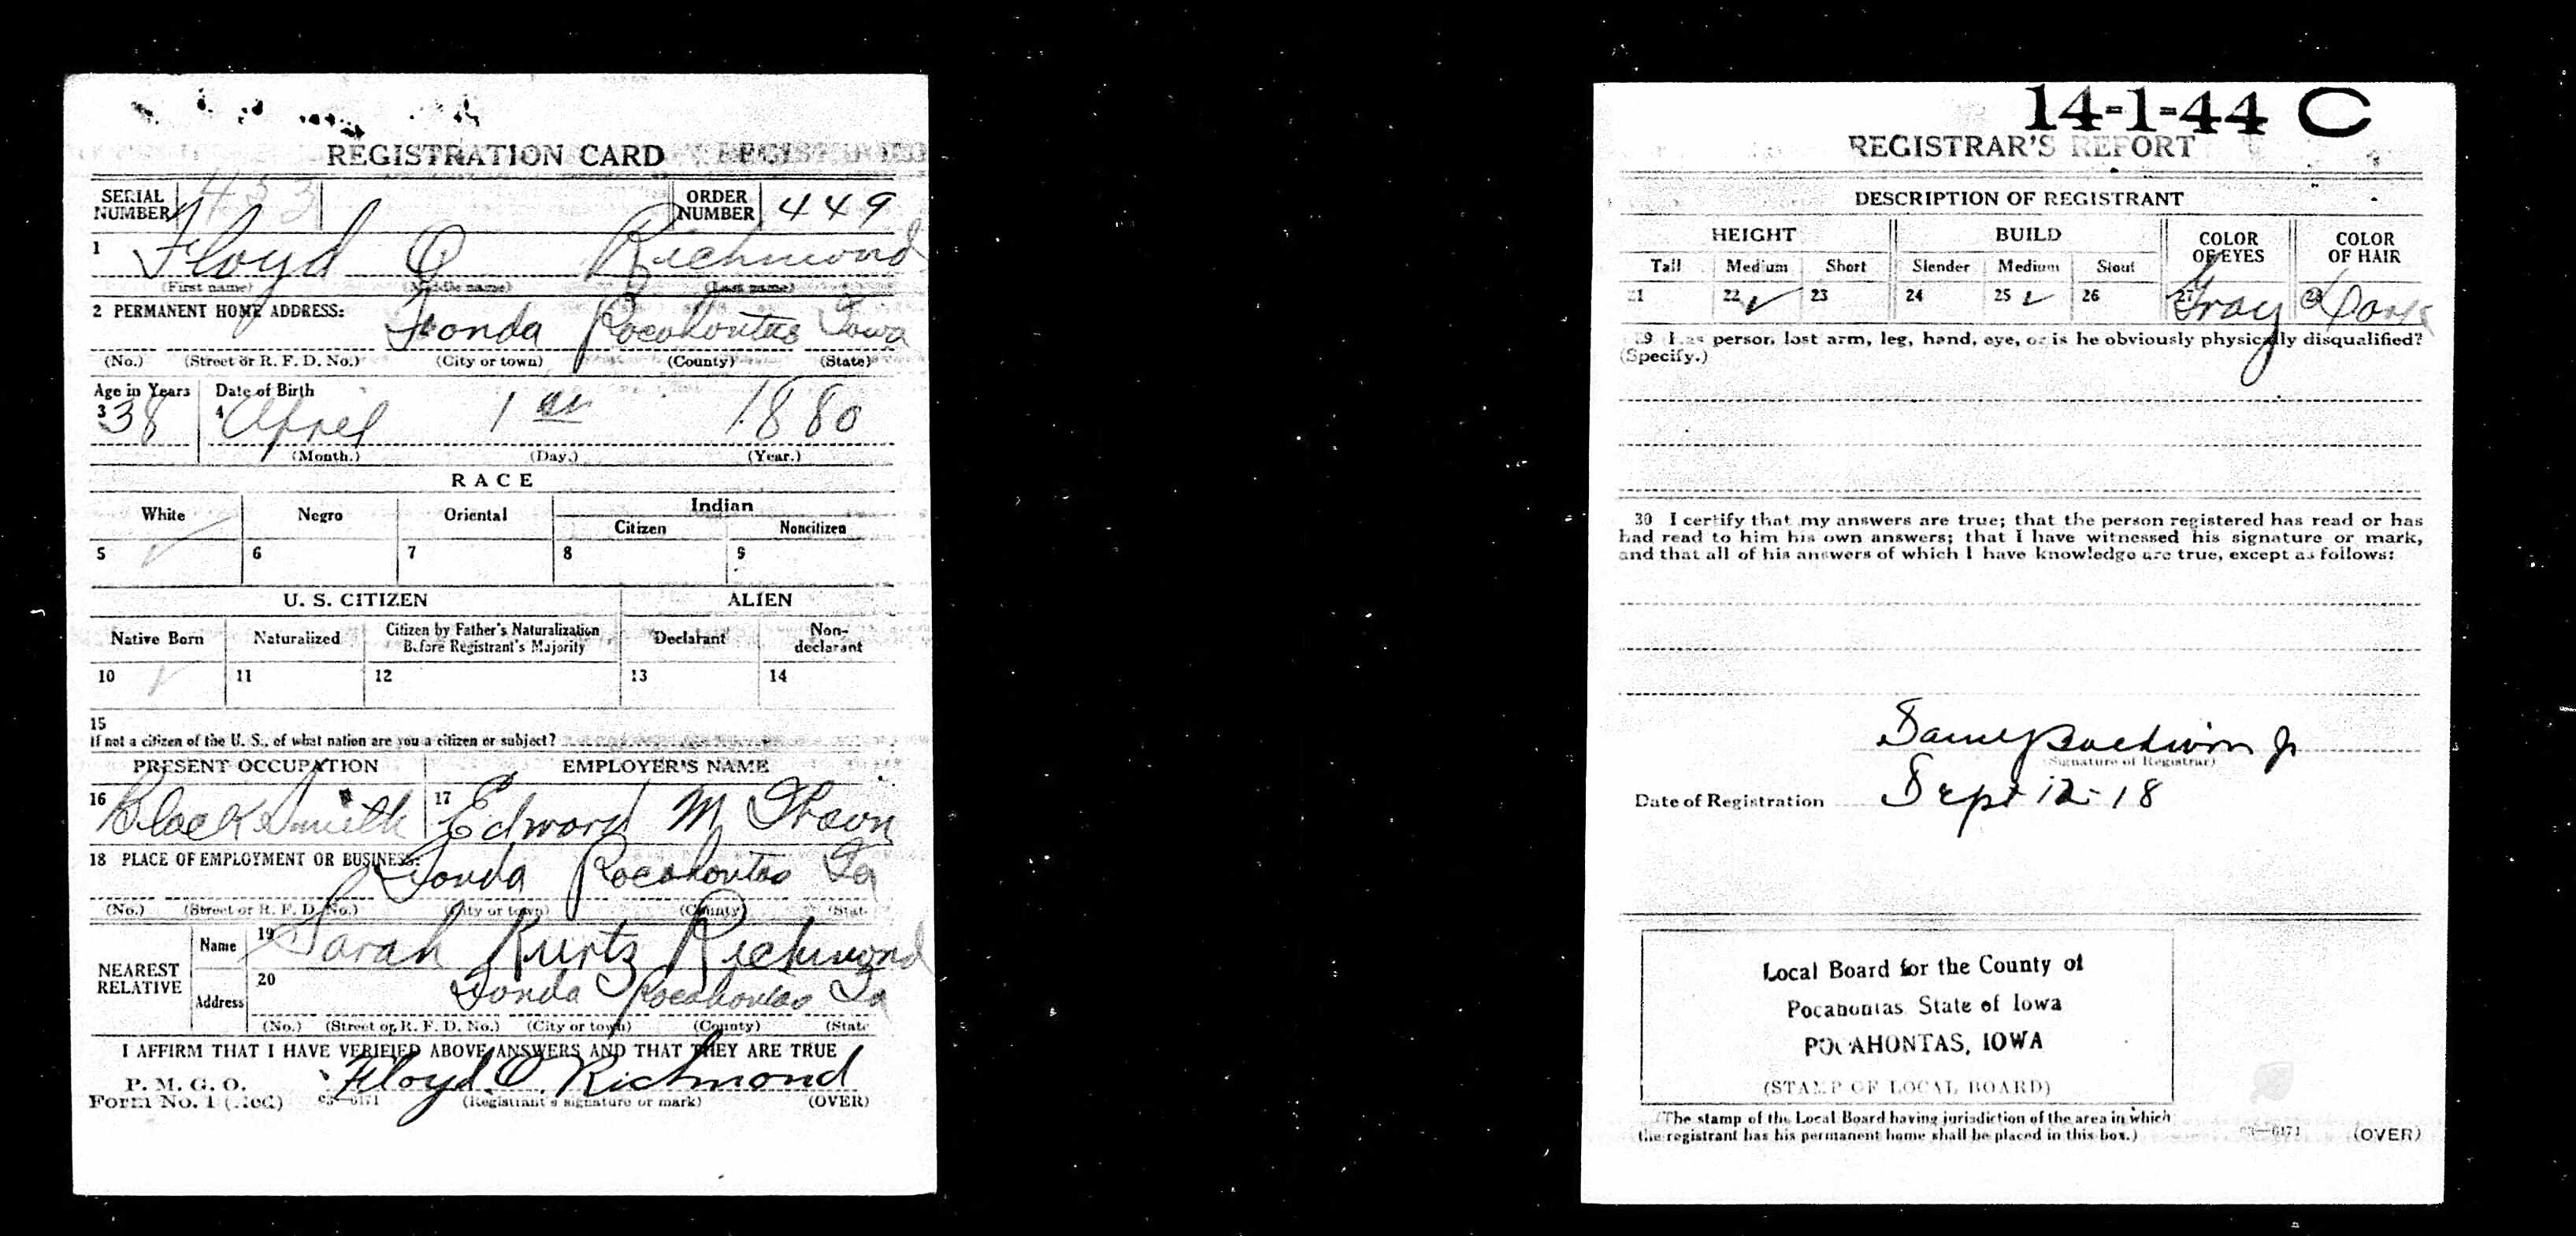 REGISTRATION CARD
SERIAL NUMBER 453 ORDER NUMBER 449
1 Floyd O Richmond
(First name) (Middle name) (Last name)
2 PERMANENT HOME ADDRESS: Fonda Pocahontas Iowa
(No.) (Street or R. F. D. No.) (City or town) (County) (State)
Age in Years Date of Birth
3 38 4 April 1 1880
(Month.) (Day.) (Year.)
RACE
White Negro Oriental Indian
Citizen Noncitizen
5 ✓ 6 7 8 9
U. S. CITIZEN ALIEN
Native Born Naturalized Citizen by Father's Naturalization Before Registrant's Majority Declarant Non-declarant
10 ✓ 11 12 13 14
15
If not a citizen of the U. S., of what nation are you a citizen or subject?
PRESENT OCCUPATION EMPLOYER'S NAME
16 Blacksmith 17 Edward M
18 PLACE OF EMPLOYMENT OR BUSINESS: Fonda Pocahontas Ia
(No.) (Street or R. F. D. No.) (City or town) (County) (State
NEAREST RELATIVE Name 19 Sarah Kurtz Richmond
Address 20 Fonda Pocahontas Ia
(No.) (Street or R. F. D. No.) (City or town) (County) (State
I AFFIRM THAT I HAVE VERIFIED ABOVE ANSWERS AND THAT THEY ARE TRUE
P. M. G. O.
Form No. 1 (Red) 03—6171 Floyd O. Richmond
(Registrant's signature or mark) (OVER)
14-1-44 C
REGISTRAR'S REPORT
DESCRIPTION OF REGISTRANT
HEIGHT BUILD COLOR OF EYES COLOR OF HAIR
Tall Medium Short Slender Medium Stout
21 22 ✓ 23 24 25 ✓ 26 27 Gray 28 Dark
29 Has person lost arm, leg, hand, eye, or is he obviously physically disqualified?
(Specify.)
30 I certify that my answers are true; that the person registered has read or has
had read to him his own answers; that I have witnessed his signature or mark,
and that all of his answers of which I have knowledge are true, except as follows:
Jr
(Signature of Registrar)
Date of Registration Sept 12-18
Local Board for the County of
Pocahontas State of Iowa
POCAHONTAS, IOWA
(STAMP OF LOCAL BOARD)
(The stamp of the Local Board having jurisdiction of the area in which
the registrant has his permanent home shall be placed in this box.)
03—6171 (OVER)